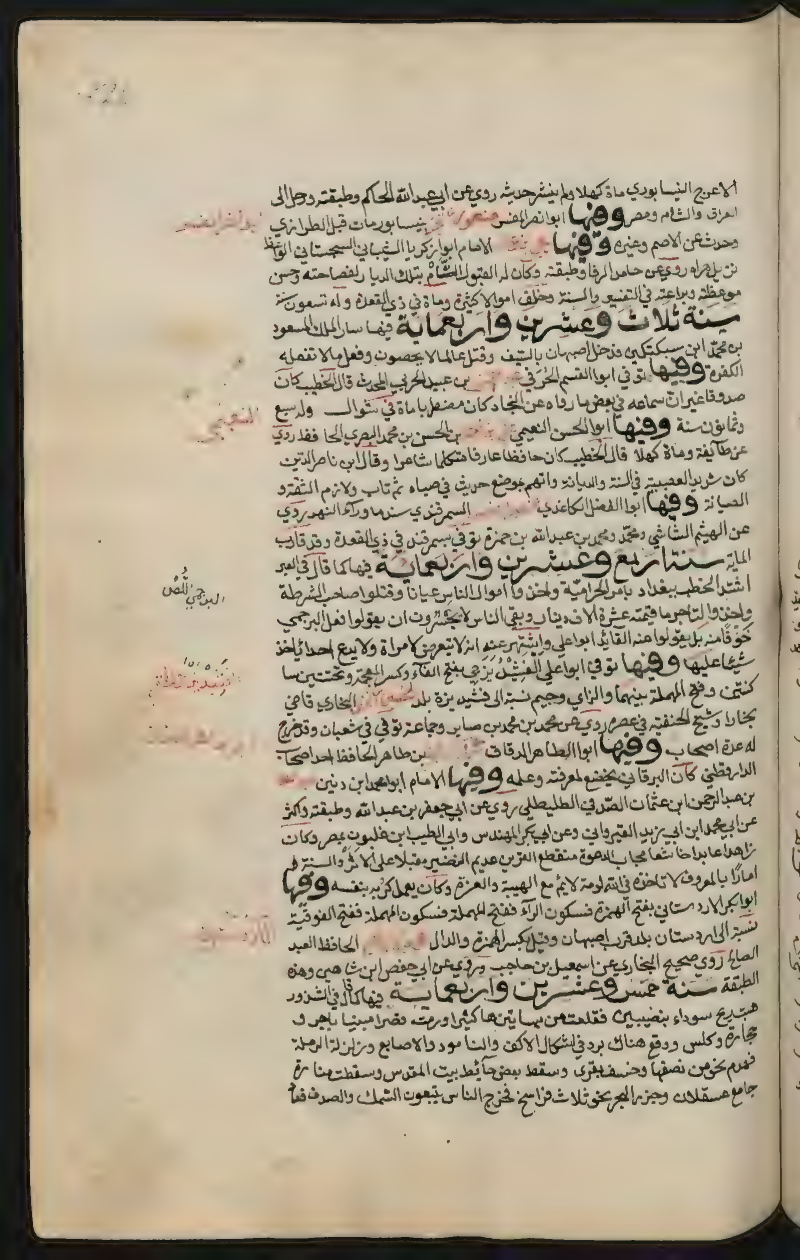 الاعرج النيسابوري مات كهلا ولم ينشر حديثه روي عن ابي عبد الله الحاكم وطبقته ورحل الى
العراق والشام ومصر وفيها ابوالنصر المفسر منصور بنيسابور مات قبل الطرازي
وحدث عن الاصم وغيره وفيها الامام ابو زكريا الشيباني السجستاني الواعظ
نزيل هراه روي عن حامد الرفا وطبقته وكان له القبول التام بتلك الديار لفصاحته وحسن
موعظته وبراعته في التفسير والسنة وخلف اموالا كثيرة ومات في ذي القعدة وله تسعون سنة
سنة ثلاث وعشرين واربعماية فيها سار الملك المسعود
بن محمد ابن سبكتكين فدخل اصبهان بالسيف وقتل عالما لا يحصون وفعل ما لا تفعله
الكفرة وفيها توفي ابوا القسم الحرفي بن عبيد الحربي المحدث قال الخطيب كان
صدوقا غير ان سماعه في بعض ما رواه عن النجاد كان مضطربا مات في شوال وله سبع
وثمانون سنة وفيها ابوا الحسن النعيمي بن الحسن بن محمد البصري الحافظ روي
عن طايفة ومات كهلا قال الخطيب كان حافظا عارفا متكلما شاعرا وقال ابن ناصر الدين
كان شديد العصبية في السنة والديانة واتهم بوضع حديث في صباه ثم تاب ولازم الثقة و
الصيانة وفيها ابوا الفضل الكاغدي السمرقندي مسند ما وراء النهر روي
عن الهيثم الشاشي ومحمد بن محمد بن عبد الله بن حمزة توفي بسمرقند في ذي القعدة وقد قارب
الماية سنة اربع وعشرين واربعماية فيها كما قال في العبر
اشتد الخطب ببغداد بامر الحرامية واخذوا اموال الناس عيانا وقتلوا صاحب الشرطة
واخذوا لتاجر ما قيمته عشرة الاف دينار وبقي الناس لا يجسرون ان يقولوا فعل البرجمي
خوفا منه بل يقولوا عنه القايد ابوا علي واشتهر عنه انه لا يتعرض لامراة ولا يدع احدا ياخذ
شيئا عليها وفيها توفي ابوا علي الفشيديزجي بفتح الفاء وكسر المعجمة وتحتيتين سا
كنتين وفتح المهملة بينهما والزاي وجيم نسبة الى فشيديزة بلد البخاري قاضي
بخارا وشيخ الحنفية في عصره روي عن محمد بن محمد بن صابر وجماعة توفي في شعبان وقد خرج
له عدة اصحاب وفيها ابوا الطاهر الدقاق بن طاهر الحافظ احد اصحاب
الدارقطني كان البرقاني يخضع لمعرفته وعلمه وفيها الامام ابو محمد ابن دنين
بن عبد الرحمن ابن عثمان الصدفي الطليطلي روي عن ابي جعفر بن عبد الله وطبقته واكثر
عن ابي محمد ابن ابي يزيد القيرواني وعن ابي بكر المهندس وابي الطيب ابن غلبون بمصر وكان
زاهدا عابدا خاشعا مجاب الدعوة منقطع القرين عديم النضير مقبلا على الاثر والسنة
امارا بالمعروف لا تاخذه في الله لومة لايم مع الهيبة والعزة وكان يعمل كرمه بنفسه وفيها
ابوا بكر الاردستاني بفتح الهمزة فسكون الراء ففتح المهملة فسكون المهملة ففتح الفوقية
نسبة الى اردستان بلد قرب اصبهان وقيل بكسر الهمزة والدال الحافظ العبد
الصالح روي صحيح البخاري عن اسمعيل بن حاجب وروي عن ابي حفص ابن شاهين وهذه
الطبقة سنة خمس وعشرين واربعماية فيها كما قال في الشذور
هبت ريح سوداء بنصيبين فقلعت من بساتينها كثيرا ورمت قصرا مبينا باجر و
حجارة وكلس ووقع هناك برد في اشكال الاكف والزنود والاصابع وزلزلة الرملة
فهدم نحو من نصفها وخسف بقرى وسقط بعض حائط بيت المقدس وسقطت منارة
جامع عسقلان وجزر البحر نحو ثلاث فراسخ فخرج الناس يتبعون السمك والصدف فعا
النعيمي
البرجمي اللص